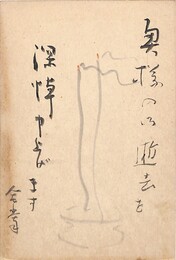 奥様の御逝去を
深悼申上げ
ます
合掌